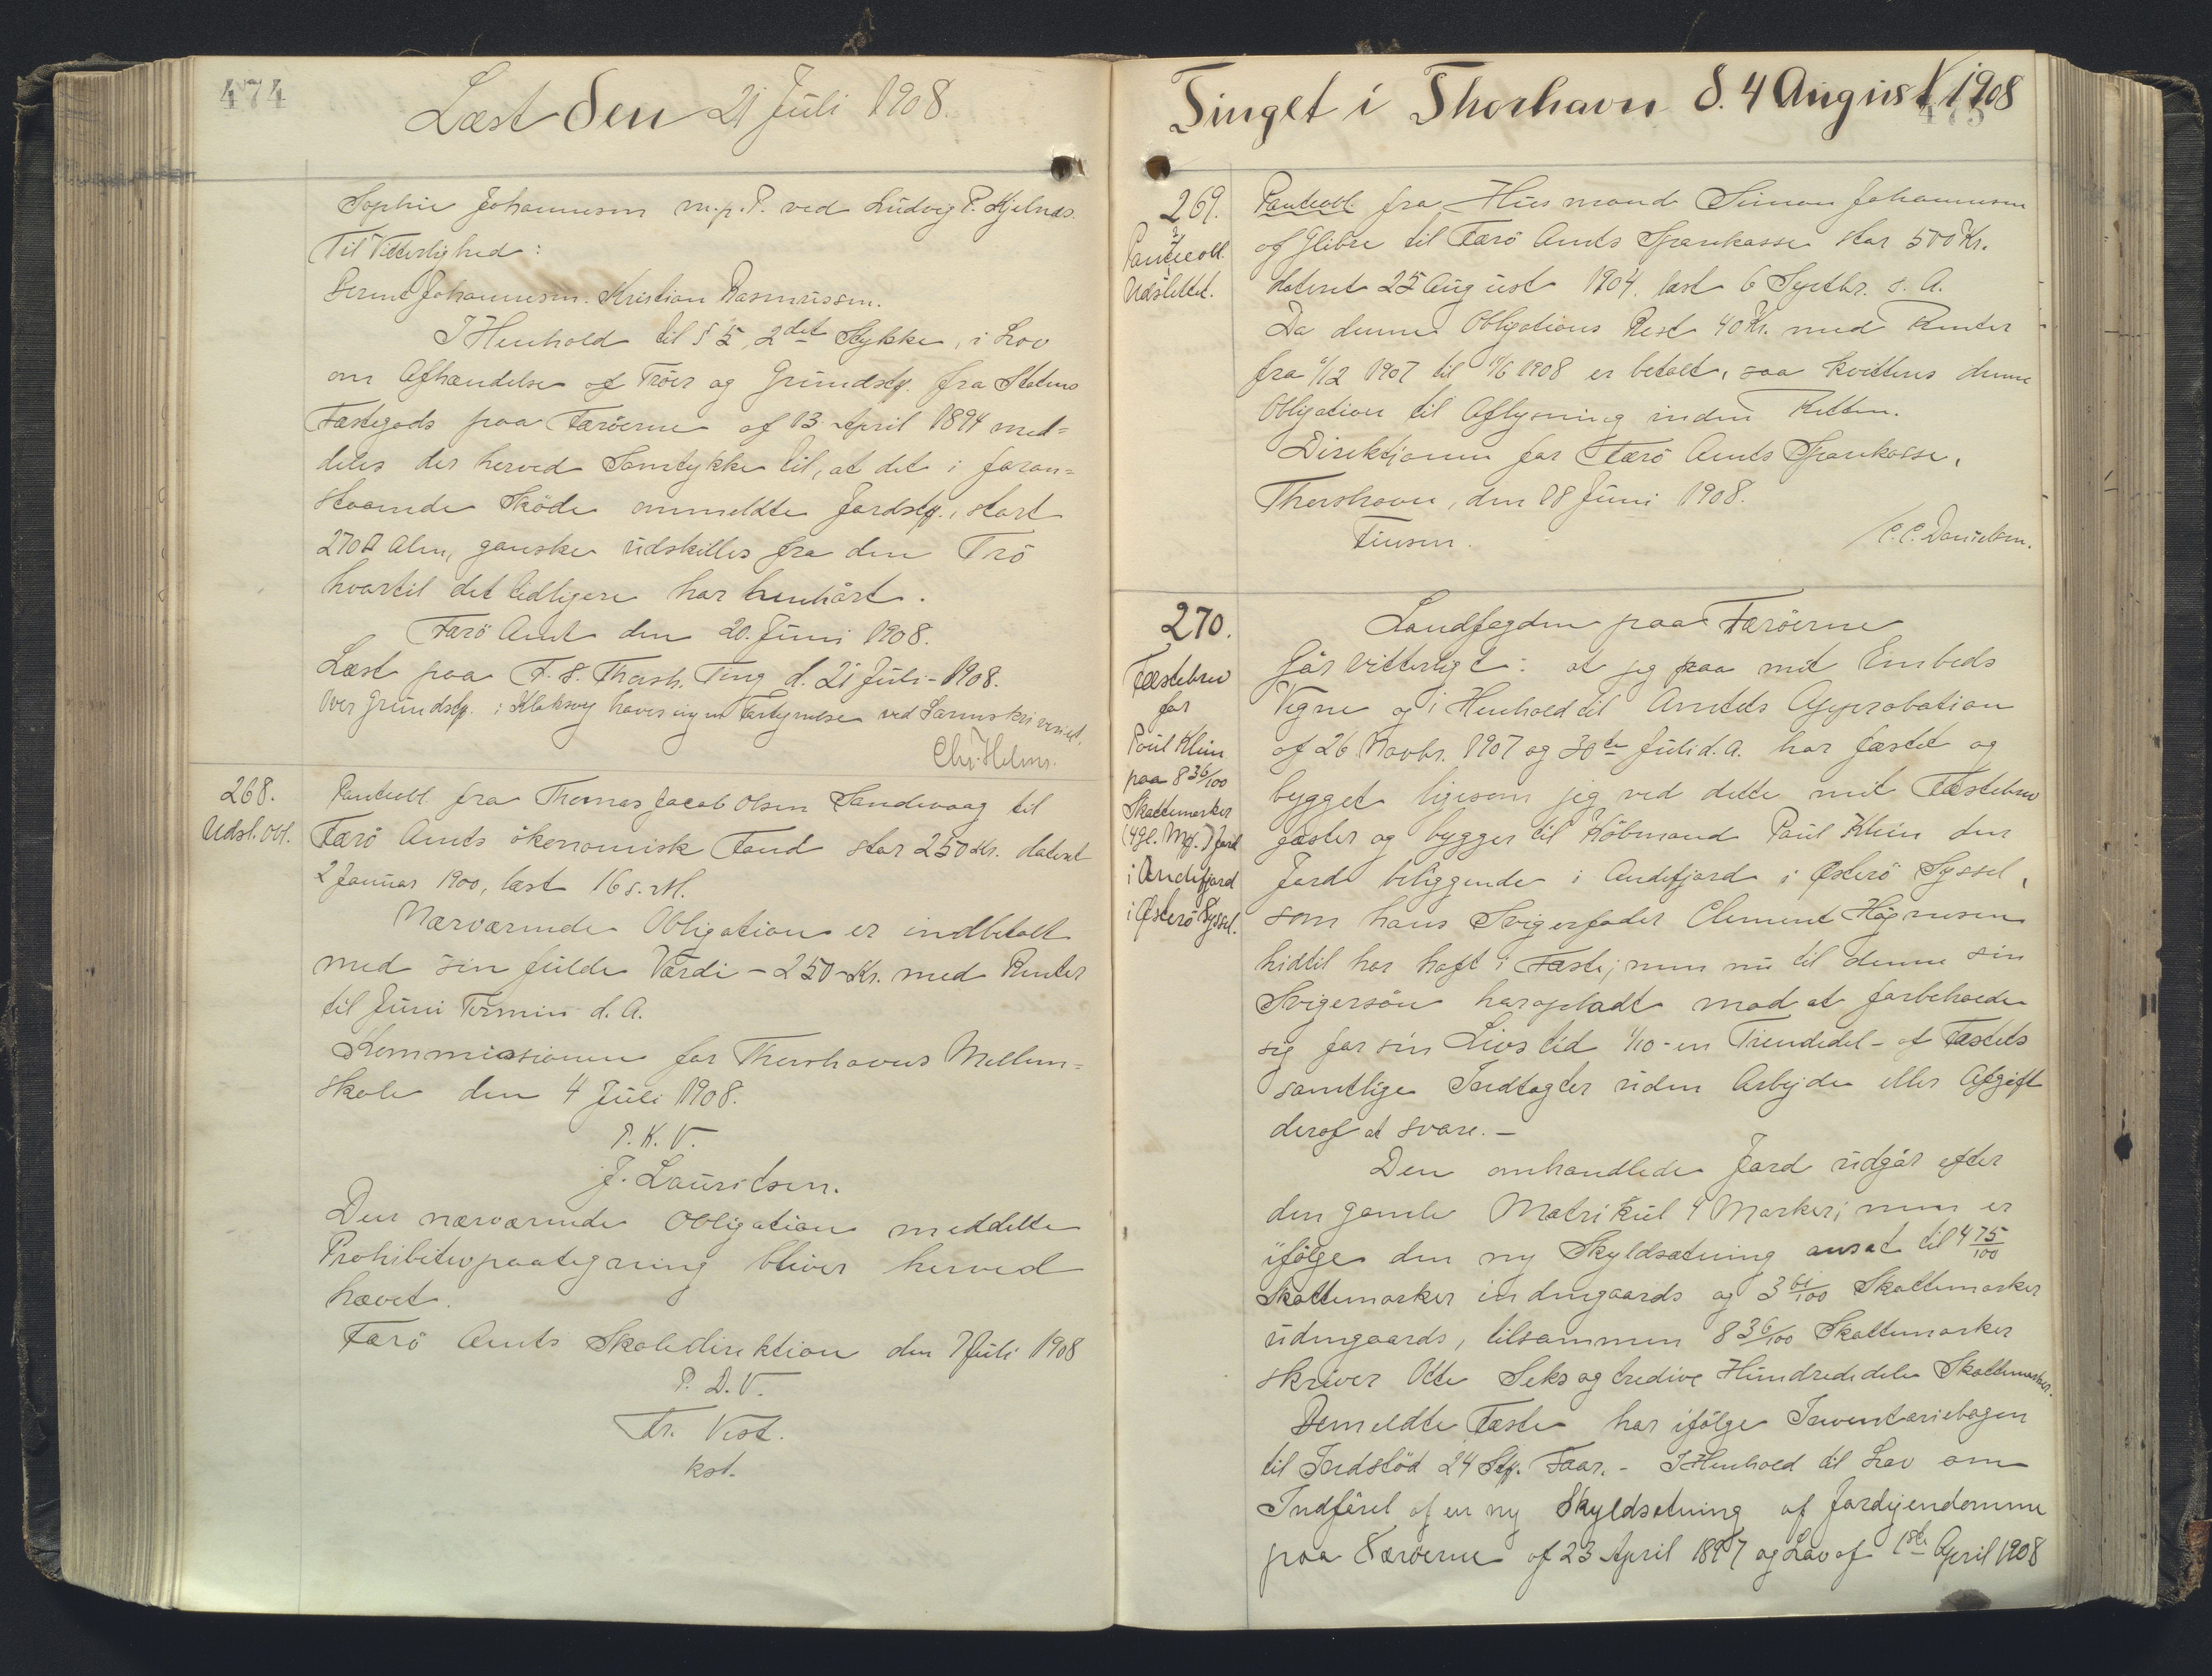 474
Læst den 21 Juli 1908.
Sophie Johannesen m.p.P. ved Ludvig P. Kjelnæs.
Til Vitterlighed:
Johannesen. Kristian Rasmussen.
I Henhold til § 5, 2det Stykke, i Lov
om Afhændelse af Tröer og Grundstp. fra Statens
Fæstegods paa Færöerne af 13 April 1894 med=
deles der herved Samtykke til, at det i foran=
staaende Sköde ommeldte Jordstp., stort
270 □ Alen, ganske udskilles fra den Trö
hvortil det tidligere har henhört.
Færö Amt den 20. Juni 1908.
Læst paa F. S. Thorsh. Ting d. 21 Juli - 1908.
Over Grundstp. i Klaksvig haves ingen Fortegnelse ved Sorenskriveriet.
Chr. Helms.
268.
Udsl. Obl.
Panteobl. fra Thomas Jacob Olsen Sandevaag til
Færö Amts ökonomisk Fond stor 250 Kr. dateret
2 Januar 1900, læst 16 s. M.
Nærværende Obligation er indbetalt
med sin fulde Værdi - 250 - Kr. med Renter
til Juni Termin d. A.
Kommissionen for Thorshavns Mellem=
skole den 4 Juli 1908.
P. K. V.
J. Lauritsen.
Den nærværende Obligation meddelte
Prohibitivpaategning bliver herved
hævet.
Færö Amts Skoledirektion den 7 Juli 1908
P. D. V.
Fr. Vest.
kst.
Tinget i Thorhavn d. 4 August 1908
475
269.
Panteobl.
Udslettet.
Panteobl. fra Husmand Simon Johannesen
af Glibre til Færö Amts Sparekasse stor 500 Kr.
dateret 25 August 1904, læst 6 Septbr. s. A.
Da denne Obligations Rest 40 Kr. med Renter
fra 11/12 1907 til 11/6 1908 er betalt, saa kvitteres denne
Obligation til Aflysning inden Retten.
Direktionen for Færö Amts Sparekasse,
Thorshavn, den 18 Juni 1908.
Finsen. C.C. Danielsen.
270.
Fæstebrev
for
Poul Klein
paa 8 36/100
Skattemarker
(4 gl. Mk.) Jord
i Andefjord
i Österö Syssel.
Landfogden paa Færöerne
Gör vitterligt: at jeg paa mit Embeds
Vegne og i Henhold til Amtets Approbation
af 26 Novbr. 1907 og 30te Juli d. A. har fæstet og
bygget ligesom jeg ved dette mit Fæstebrev
fæster og bygger til Köbmand Poul Klein den
Jord beliggende i Andefjord i Österö Syssel,
som hans Svigerfader Clement Högnesen
hidtil har haft i Fæste; men nu til denne sin
Svigersön har opladt mod at forbeholde
sig for sin Livstid 1/10 - en Tiendedel - af Fæstets
samtlige Indtægter uden Arbejde eller Afgift
deraf at svare. -
Den omhandlede Jord udgör efter
den gamle Matrikul 4 Marker; men er
ifölge den ny Skyldsætning ansat til 4 75/100
Skattemarker indengaards og 3 61/100 Skattemarker
udengaards, tilsammen 8 36/100 Skattemarker
skriver Otte Seks og tredive Hundrededele Skattemarker.
Bemeldte Fæste har ifölge Inventariebogen
til Indstöd 24 Stp. Faar. - I Henhold til Lov om
Indförel af en ny Skyldsætning af Jordejendomme
paa Færöerne af 23 April 1897 og Lov af 1ste April 1908